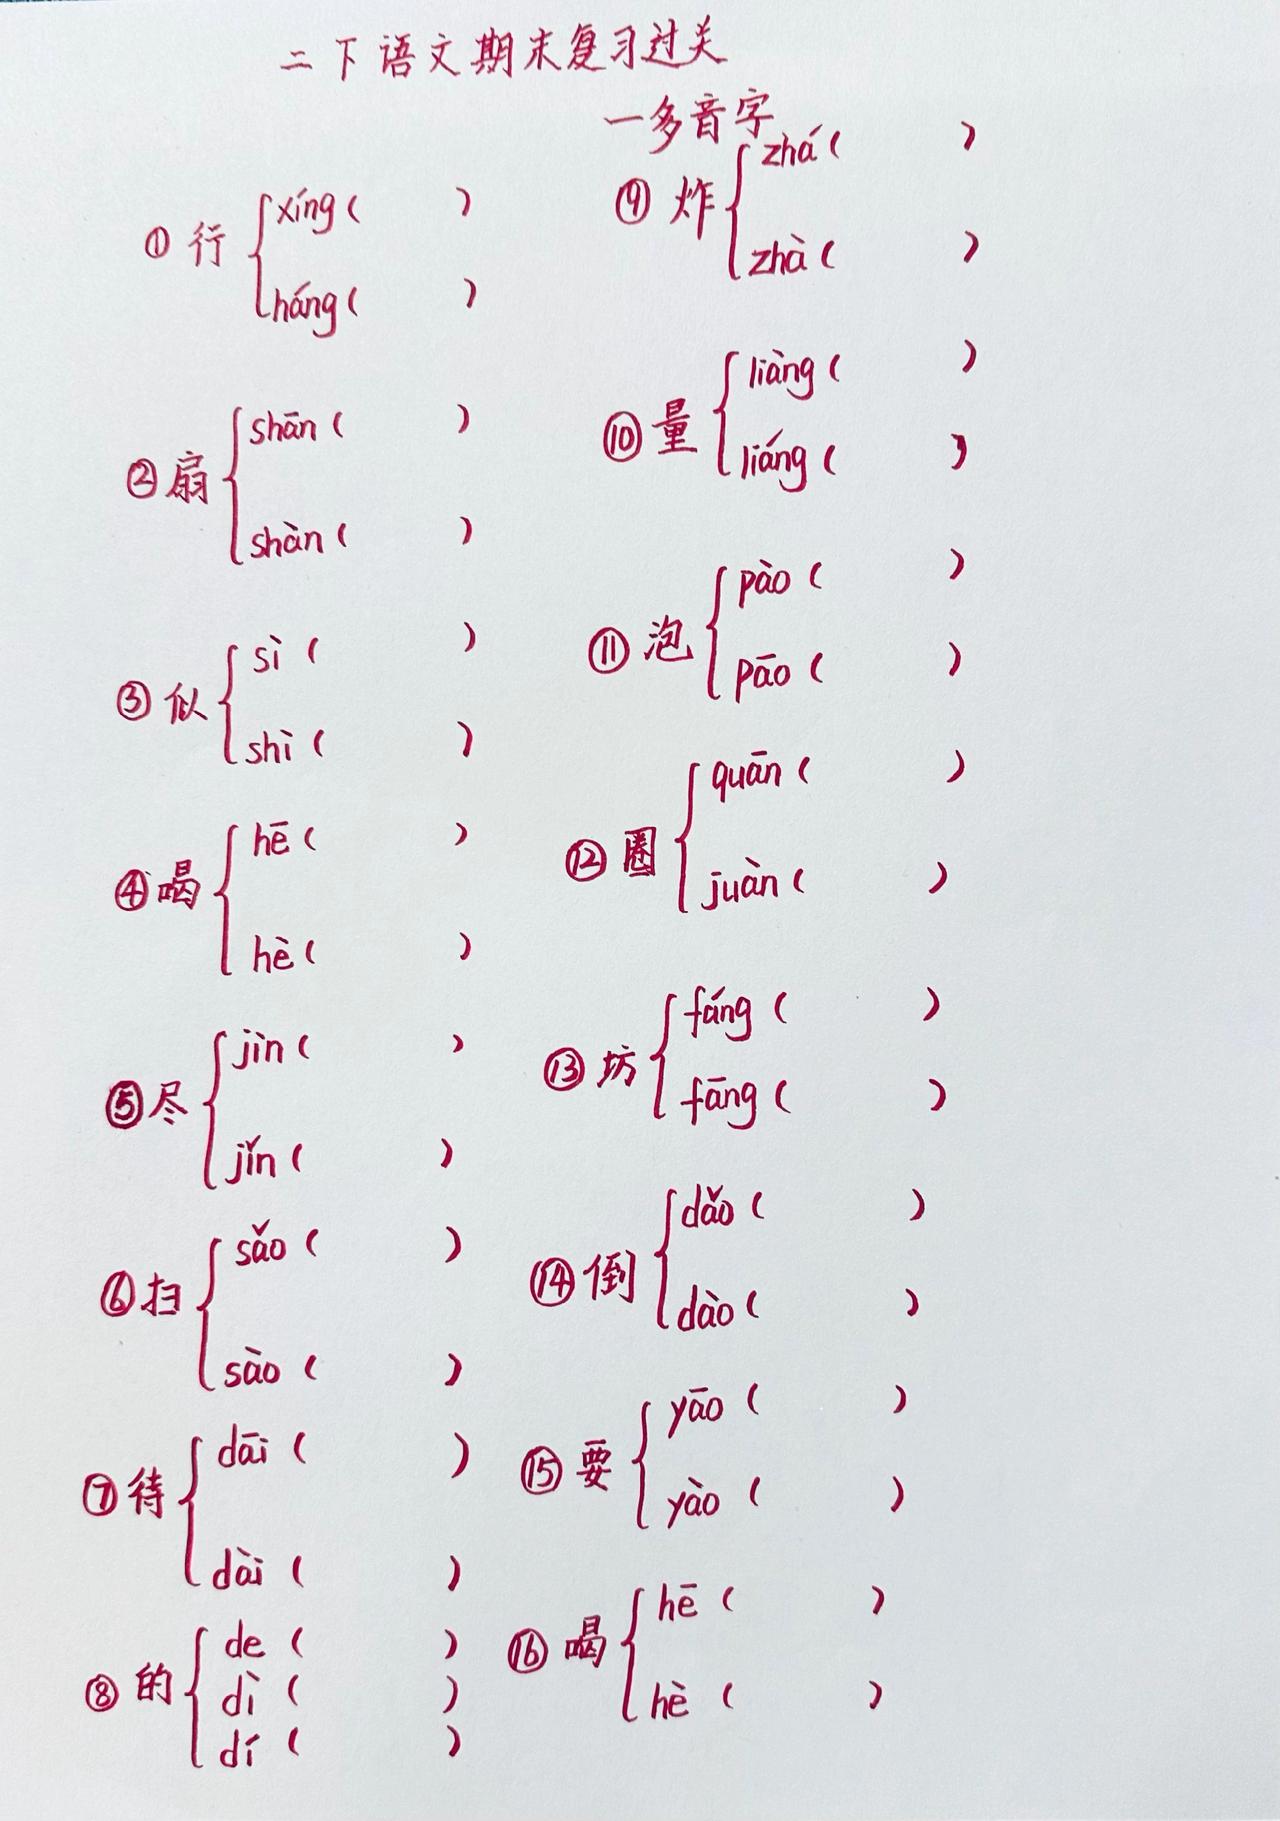 二下语文期末复习过关
一多音字
①行 xíng (    )
háng (    )
②扇 shān (    )
shàn (    )
③似 sì (    )
shì (    )
④喝 hē (    )
hè (    )
⑤尽 jìn (    )
jǐn (    )
⑥扫 sǎo (    )
sào (    )
⑦待 dāi (    )
dài (    )
⑧的 de (    )
dì (    )
dí (    )
⑨炸 zhá (    )
zhà (    )
⑩量 liàng (    )
liáng (    )
⑪泡 pào (    )
pāo (    )
⑫圈 quān (    )
juàn (    )
⑬坊 fáng (    )
fāng (    )
⑭倒 dǎo (    )
dào (    )
⑮要 yāo (    )
yào (    )
⑯喝 hē (    )
hè (    )